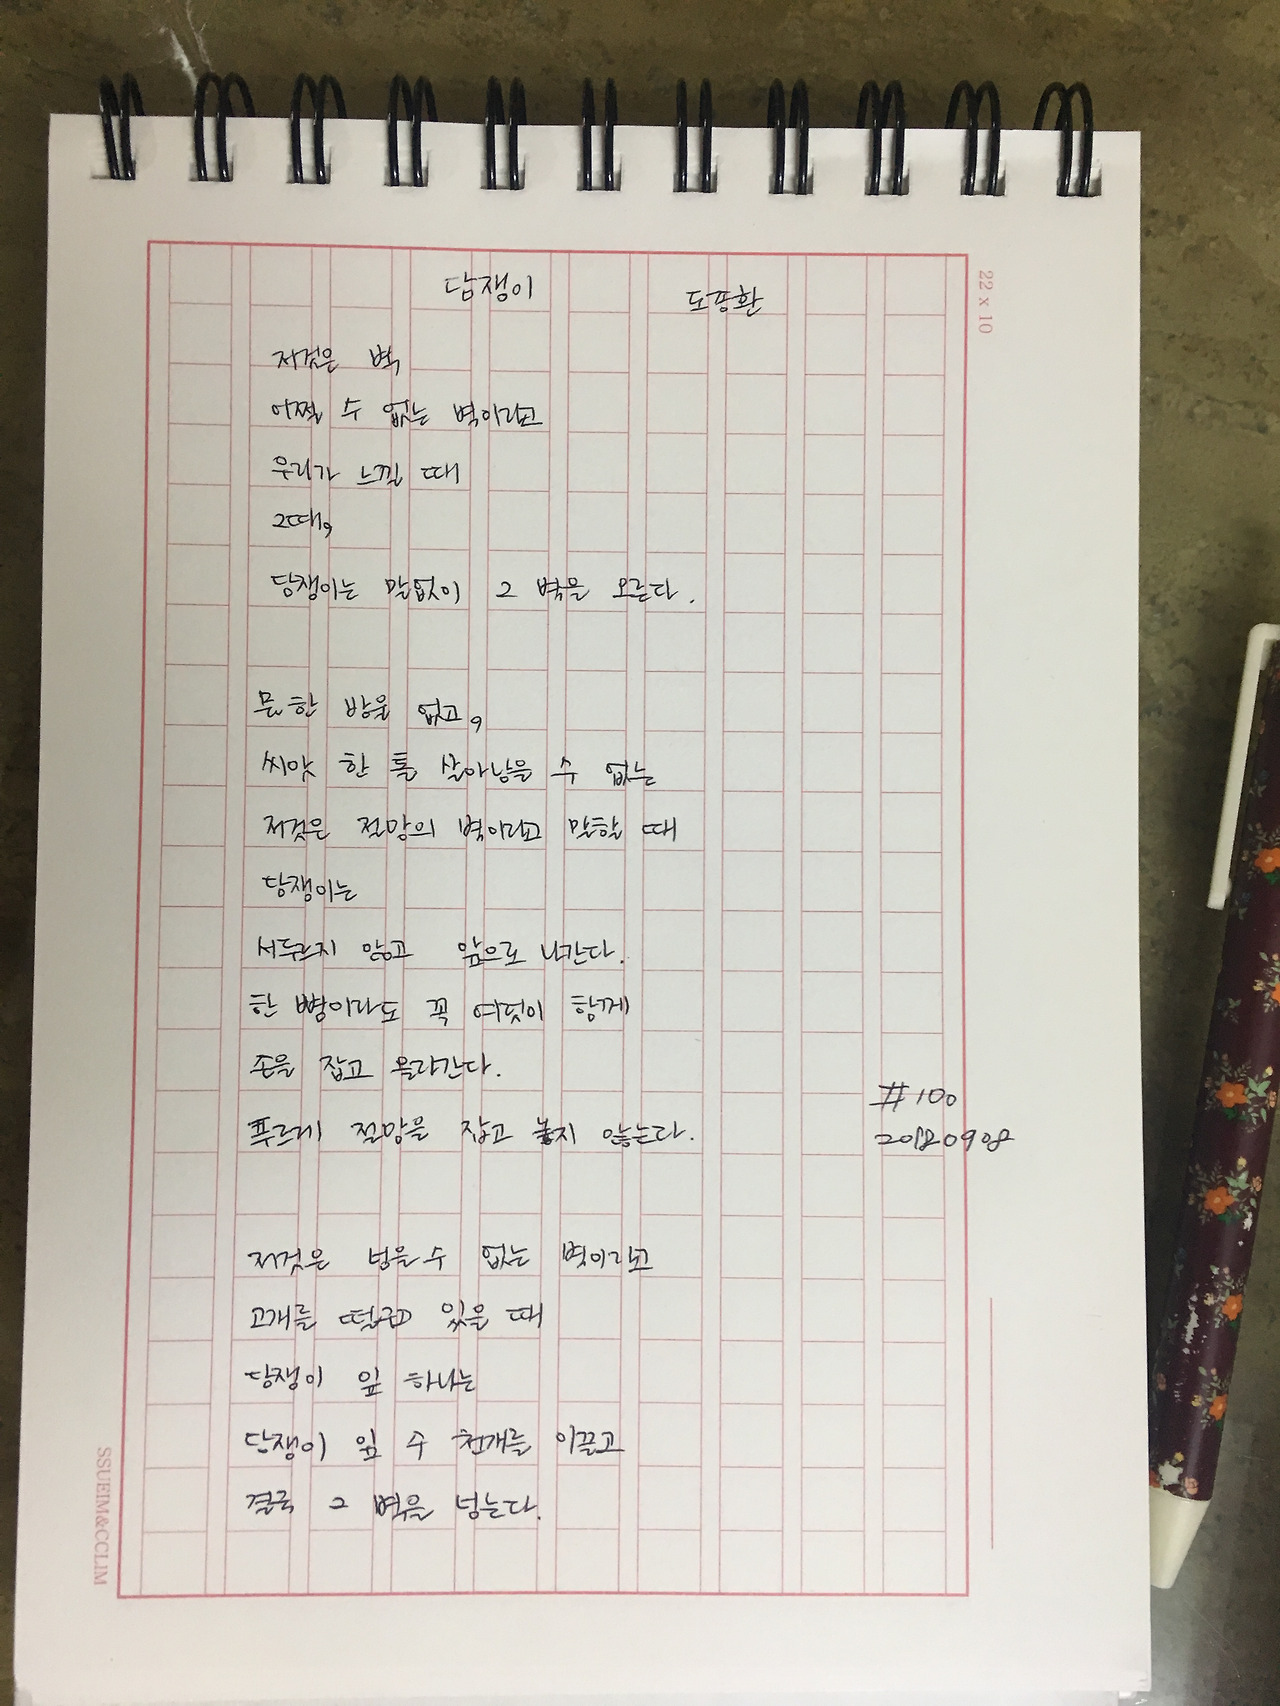 담쟁이 도종환
저것은 벽
어쩔 수 없는 벽이라고
우리가 느낄 때
그때,
담쟁이는 말없이 그 벽을 오른다.
물 한 방울 없고,
씨앗 한 톨 살아남을 수 없는
저것은 절망의 벽이라고 말할 때
담쟁이는
서두르지 않고 앞으로 나간다.
한 뼘이라도 꼭 여럿이 함께
손을 잡고 올라간다.
푸르게 절망을 잡고 놓지 않는다.
저것은 넘을 수 없는 벽이라고
고개를 떨구고 있을 때
담쟁이 잎 하나는
담쟁이 잎 수 천개를 이끌고
결국 그 벽을 넘는다.
#100
20180908
22 x 10
SSUEIM&CCLIM